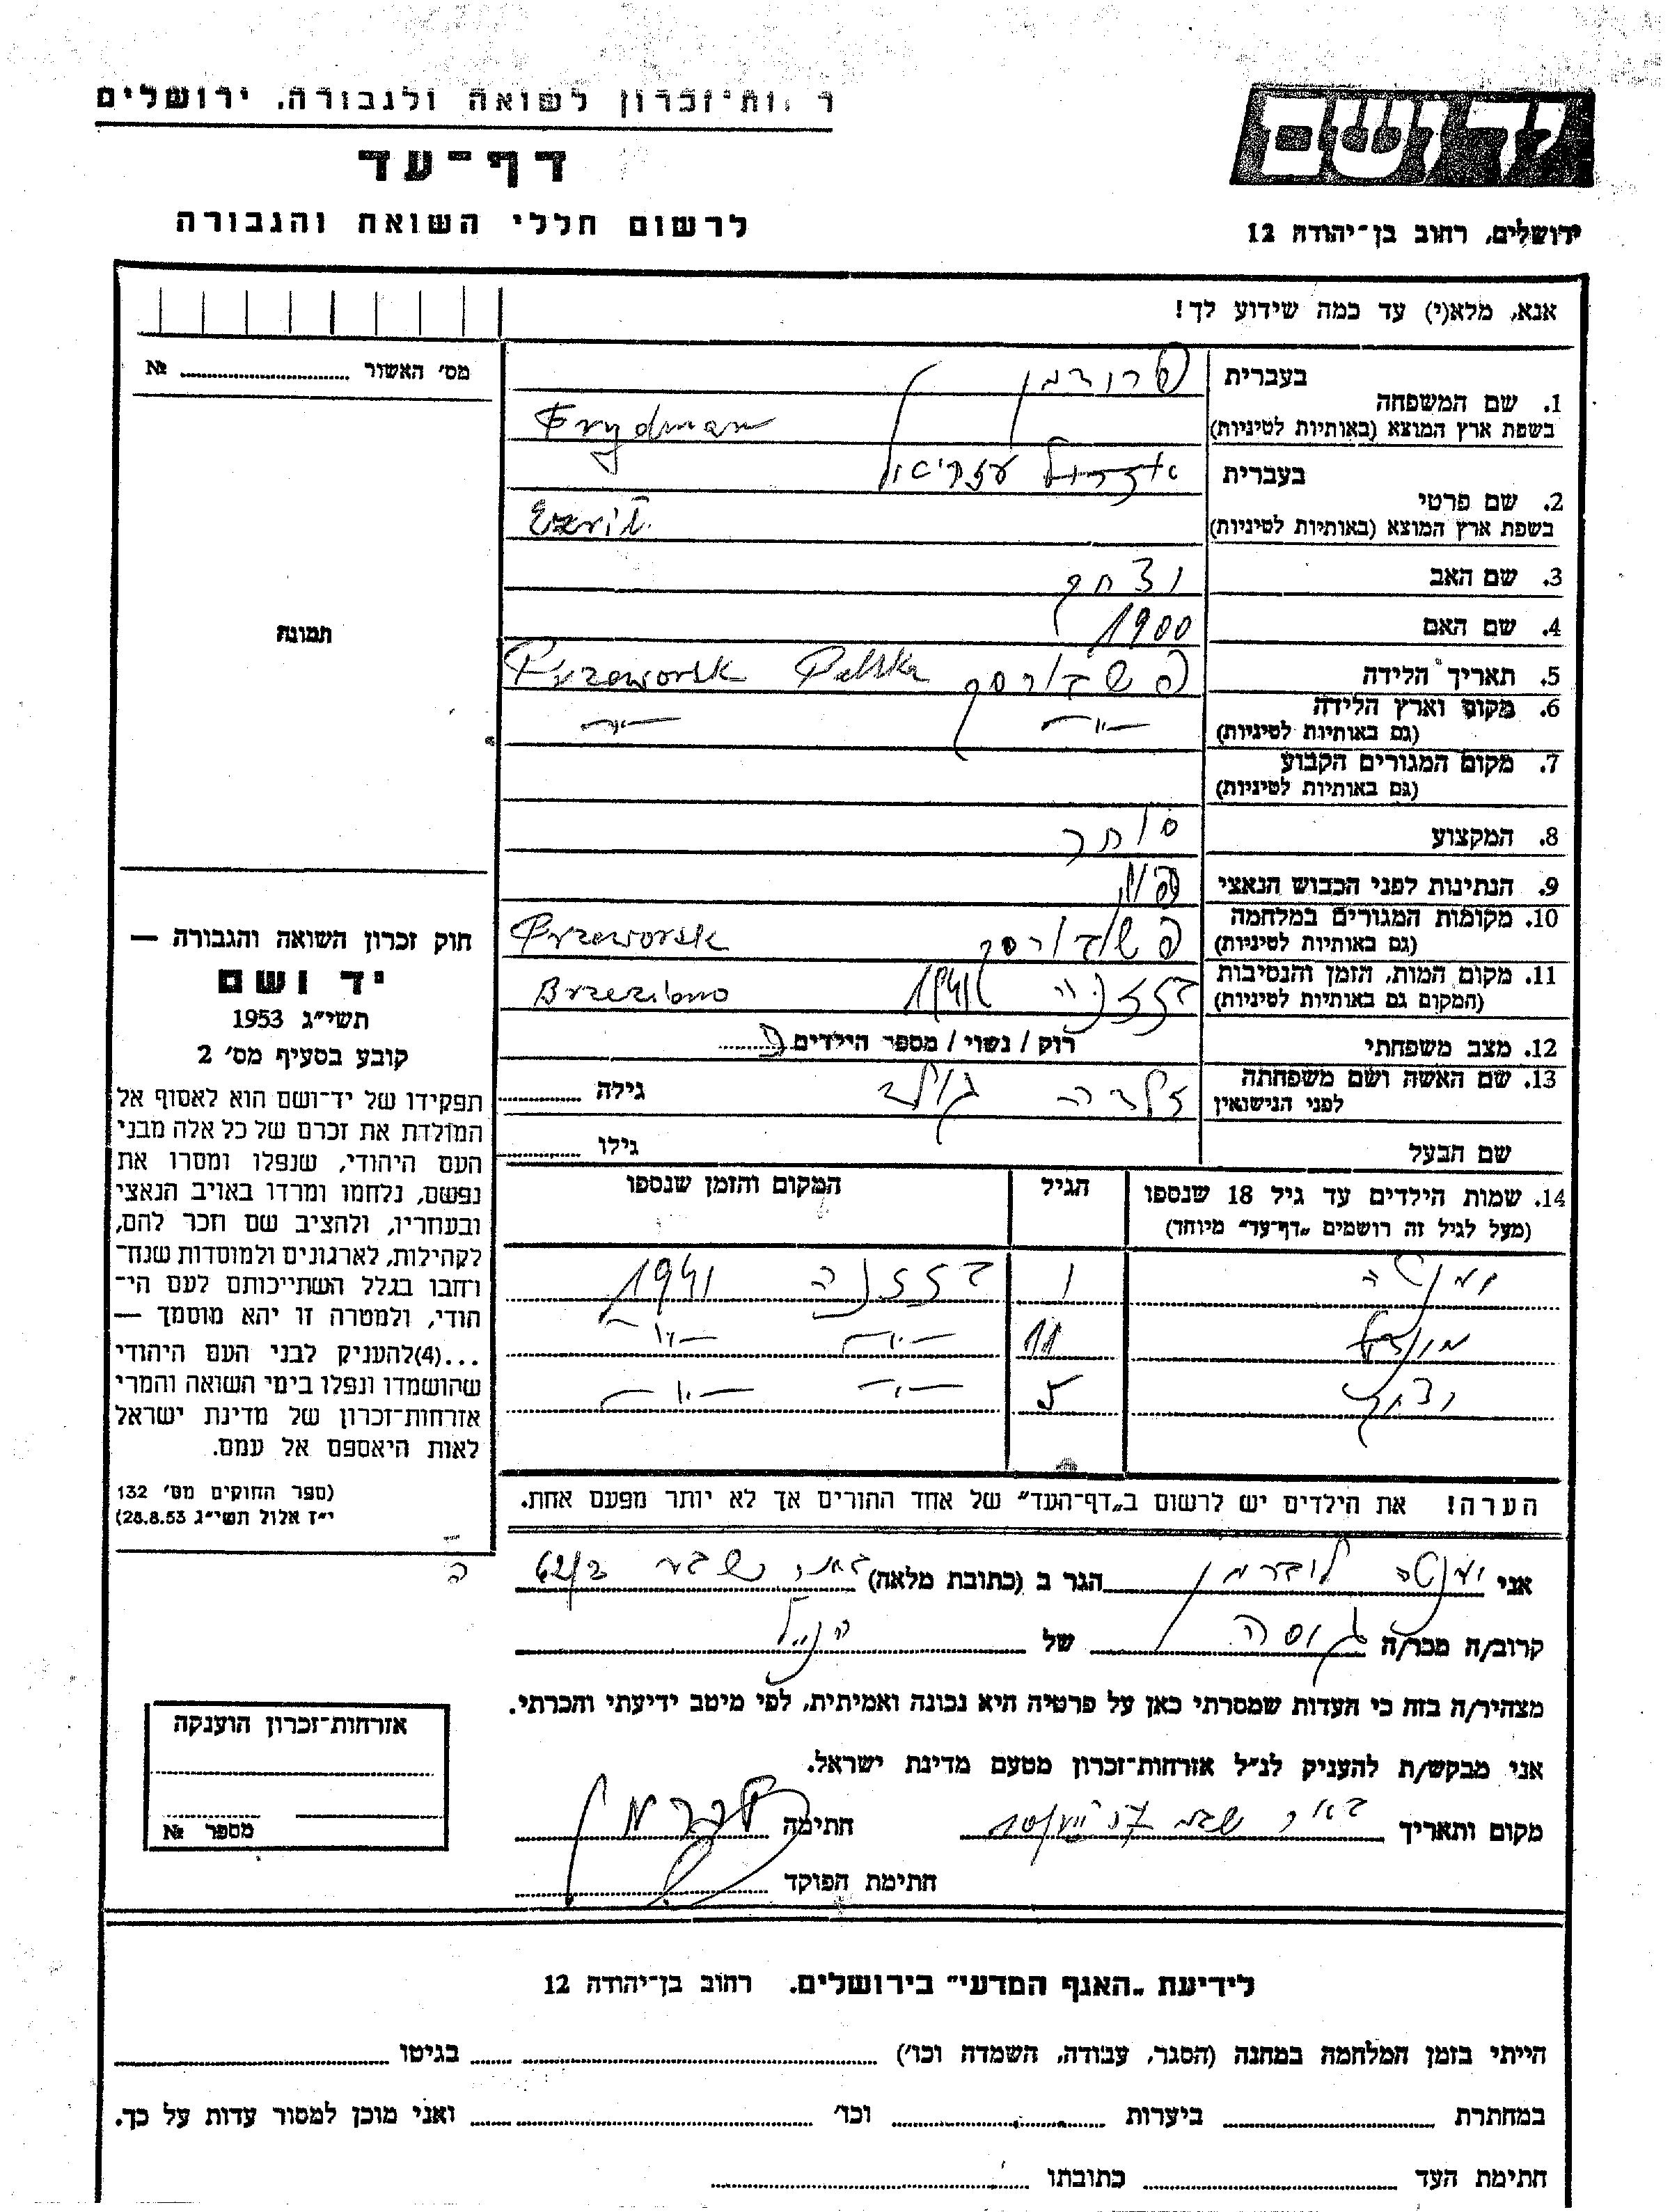 יד ושם
ות־זכרון לשואה ולגבורה. ירושלים
דף־עד
לרשום חללי השואה והגבורה
ירושלים, רחוב בן־יהודה 12
אנא, מלא(י) עד כמה שידוע לך!
מס' האשור № 
1. שם המשפחה בעברית פרידמן
בשפת ארץ המוצא (באותיות לטיניות) Frydman
2. שם פרטי בעברית עזריאל
בשפת ארץ המוצא (באותיות לטיניות) Ezril
3. שם האב יצחק
4. שם האם
1900
5. תאריך הלידה
Przeworsk Polska פשבורסק
6. מקום וארץ הלידה
(גם באותיות לטיניות) —״— —״—
7. מקום המגורים הקבוע
(גם באותיות לטיניות)
8. המקצוע סוחר
9. הנתינות לפני הכבוש הנאצי פול
10. מקומות המגורים במלחמה
(גם באותיות לטיניות) פשבורסק Przeworsk
11. מקום המות, הזמן והנסיבות
(המקום גם באותיות לטיניות) 1941
12. מצב משפחתי רוק / נשוי / מספר הילדים
13. שם האשה ושם משפחתה
לפני הנישואין גילה
שם הבעל גילו
14. שמות הילדים עד גיל 18 שנספו הגיל המקום והזמן שנספו
(מעל לגיל זה רושמים „דף־עד" מיוחד)
1941
11 —״— —״—
יצחק 5 —״— —״—
הערה! את הילדים יש לרשום ב„דף־העד" של אחד ההורים אך לא יותר מפעם אחת.
תמונה
חוק זכרון השואה והגבורה —
יד ושם
תשי״ג 1953
קובע בסעיף מס' 2
תפקידו של יד־ושם הוא לאסוף אל
המולדת את זכרם של כל אלה מבני
העם היהודי, שנפלו ומסרו את
נפשם, נלחמו ומרדו באויב הנאצי
ובעוזריו, ולהציב שם וזכר להם,
לקהילות, לארגונים ולמוסדות שנח־
רחבו בגלל השתייכותם לעם הי־
הודי, ולמטרה זו יהא מוסמך —
...(4)להעניק לבני העם היהודי
שהושמדו ונפלו בימי השואה והמרי
אזרחות־זכרון של מדינת ישראל
לאות היאספם אל עמם.
(ספר החוקים מס' 132
י״ז אלול תשי״ג 28.8.53)
אני לוברמן הגר ב (כתובת מלאה) באר שבע
קרוב/ה מכר/ה גיסה של הנ״ל
מצהיר/ה בזה כי העדות שמסרתי כאן על פרטיה היא נכונה ואמיתית, לפי מיטב ידיעתי והכרתי.
אני מבקש/ת להעניק לנ״ל אזרחות־זכרון מטעם מדינת ישראל.
מקום ותאריך באר שבע חתימה
חתימת הפוקד
אזרחות־זכרון הוענקה
מספר №
לידיעת „האגף המדעי" בירושלים. רחוב בן־יהודה 12
הייתי בזמן המלחמה במחנה (הסגר, עבודה, השמדה וכו') בגיטו
במחתרת ביערות וכו' ואני מוכן למסור עדות על כך.
חתימת העד כתובתו